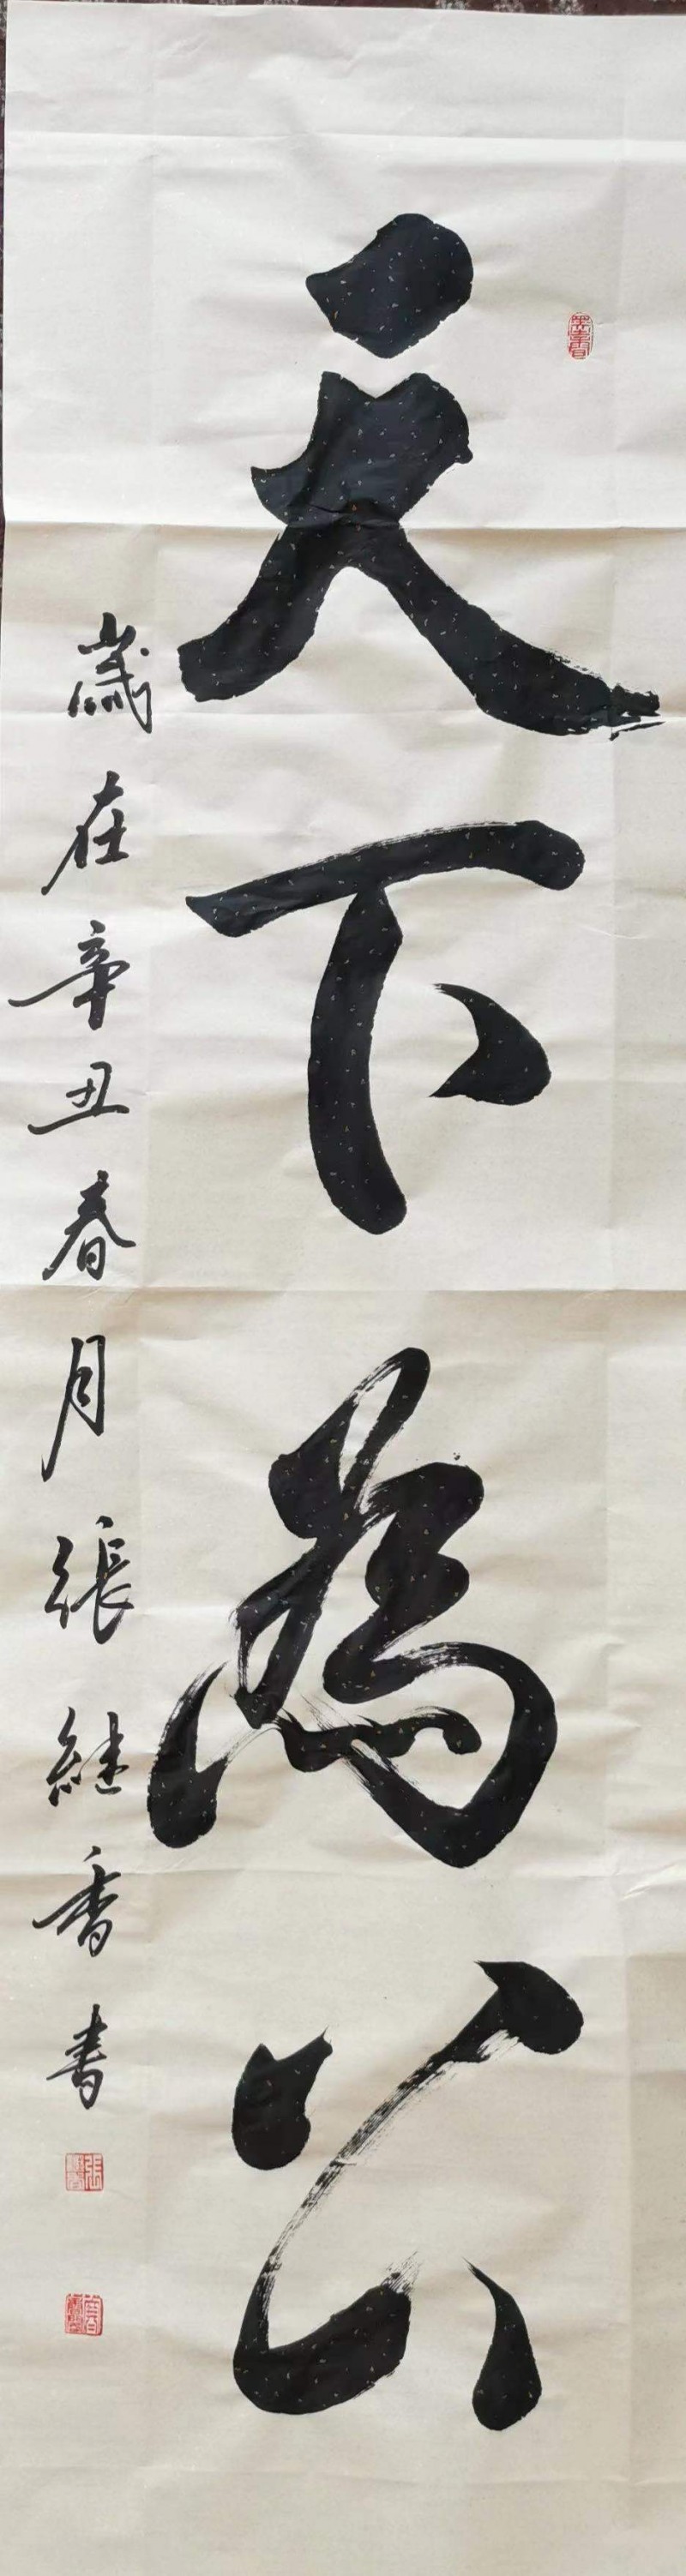 天下為公
歲在辛丑春月張継香書